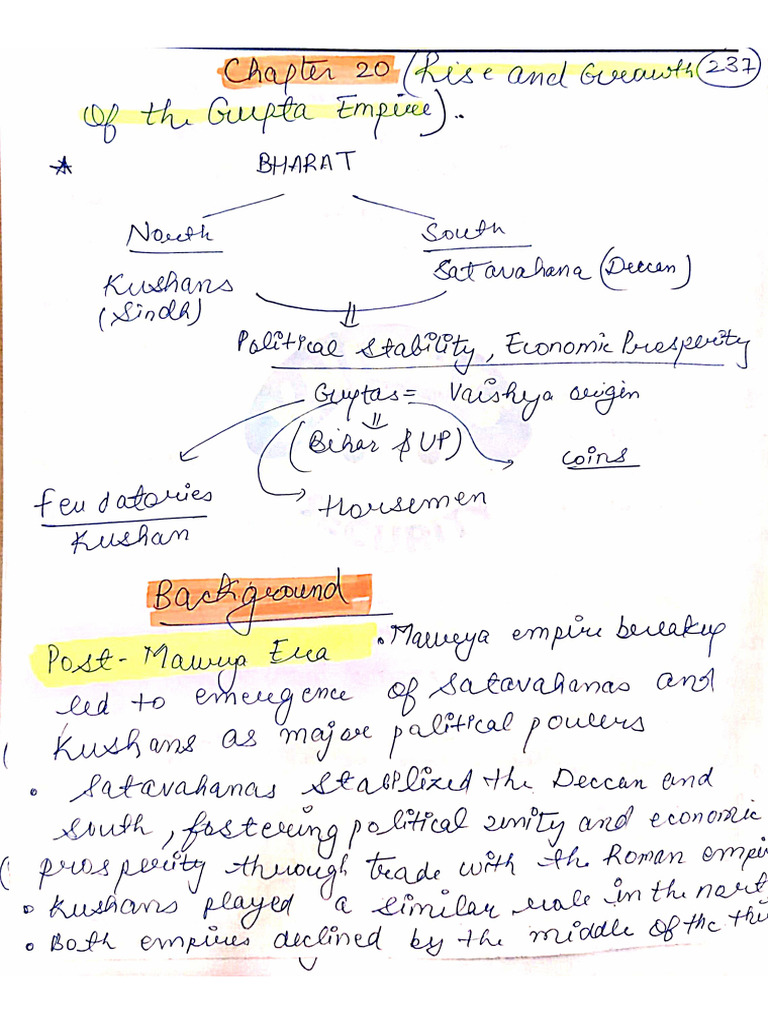 Chapter 20 (Rise and Growth 237
Of the Gupta Empire).
BHARAT
North South
Kushans Satavahana (Deccan)
(Sindh)
Political Stability, Economic Prosperity
Guptas = Vaishya origin
(Bihar & UP)
coins
Feudatories Horsemen
Kushan
Background
Post-Maurya Era • Maurya empire breakup
led to emergence of Satavahanas and
Kushans as major political powers
• Satavahanas stabilized the Deccan and
South, fostering political unity and economic
prosperity through trade with the Roman empi
• Kushans played a similar role in the nort
• Both empires declined by the middle of the thi